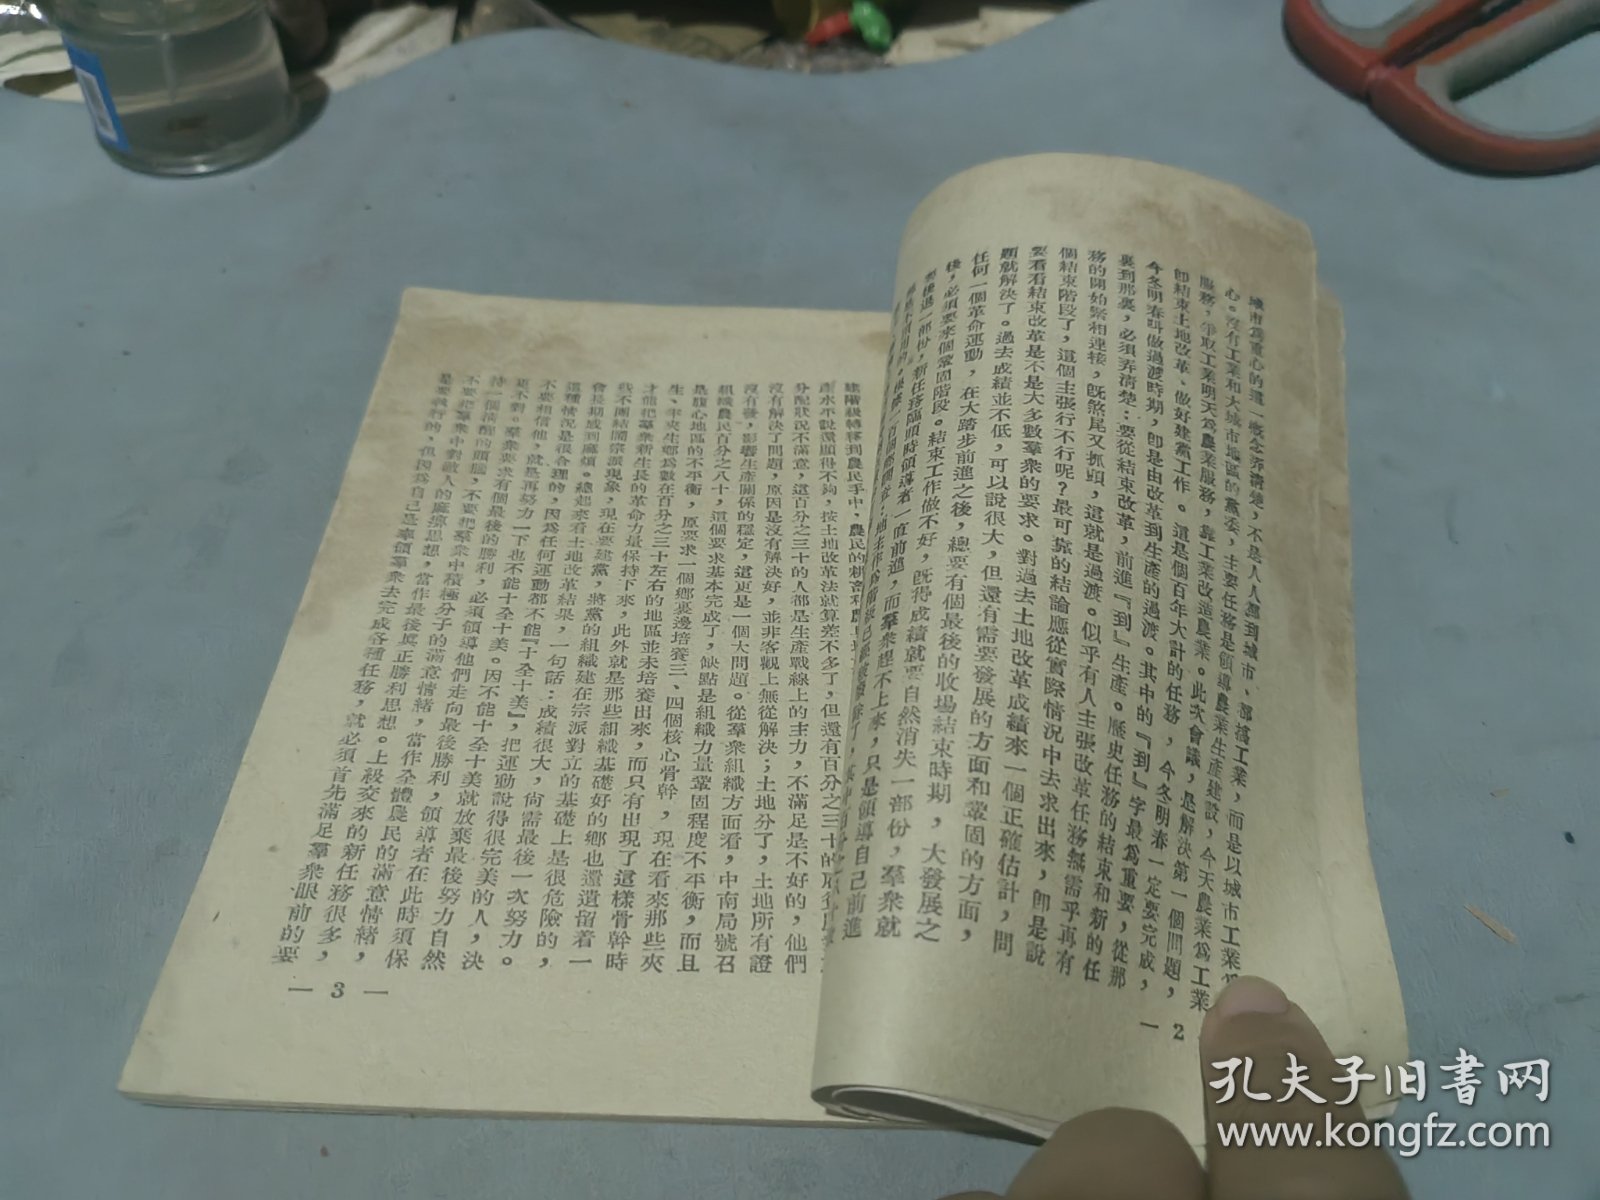 城市為重心的這一概念弄清楚，不是人人都到城市、都搞工業，而是以城市工業為
心。沒有工業和大城市地區的黨委，主要任務是領導農業生產建設，今天農業為工業
服務，爭取工業明天為農業服務，靠工業改造農業。此次會議，是解決第一個問題，
即結束土地改革、做好建黨工作。這是個百年大計的任務，今冬明春一定要完成，
今冬明春叫做過渡時期，即是由改革到生產的過渡。其中的『到』字最為重要，從那
裏到那裏，必須弄清楚：要從結束改革，前進『到』生產。歷史任務的結束和新的任
務的開始緊相連接，既煞尾又抓頭，這就是過渡。似乎有人主張改革任務無需乎再有
個結束階段了，這個主張行不行呢？最可靠的結論應從實際情況中去求出來，即是說
要看看結束改革是不是大多數羣衆的要求。對過去土地改革成績來一個正確估計，問
題就解決了。過去成績並不低，可以說很大，但還有需要發展的方面和鞏固的方面，
任何一個革命運動，在大踏步前進之後，總要有個最後的收場結束時期，大發展之
後，必須要來個鞏固階段。結束工作做不好，既得成績就要自然消失一部份，羣衆就
要後退一部份，新任務臨頭時領導者一直前進，而羣衆趕不上來，只是領導自己前進
— 2
建階級轉移到農民手中，農民的耕畜和農具
產水平說還顯得不夠，按土地改革法就算差不多了，但還有百分之三十的
分配狀況不滿意，這百分之三十的人都是生產戰線上的主力，不滿足是不好的，他們
沒有解決了問題，原因是沒有解決好，並非客觀上無從解決；土地分了，土地所有證
沒有發，影響生產關係的穩定，這更是一個大問題。從羣衆組織方面看，中南局號召
組織農民百分之八十，這個要求基本完成了，缺點是組織力量鞏固程度不平衡，而且
是腹心地區的不平衡，原要求一個鄉裏邊培養三、四個核心骨幹，現在看來那些夾
生、半夾生鄉爲數在百分之三十左右的地區並未培養出來，而只有出現了這樣骨幹時
才能把羣衆新生長的革命力量保持下來，此外就是那些組織基礎好的鄉也還遺留着一
些不團結鬧宗派現象，現在要建黨，將黨的組織建在宗派對立的基礎上是很危險的，
會長期感到麻煩。總起來看土地改革結果，一句話：成績很大，尚需最後一次努力。
這種情況是很合理的，因為任何運動都不能『十全十美』，把運動說得很完美的人，決
不要相信他，就是再努力一下也不能十全十美。因不能十全十美就放棄最後努力自然
更不對。羣衆要求有個最後的勝利，必須領導他們走向最後勝利，領導者在此時須保
持一個清醒的頭腦，不要把羣衆中積極分子的滿意情緒，當作全體農民的滿意情緒，
不要把羣衆中對敵人的麻痹思想，當作最後真正勝利思想。上級交來的新任務很多，
是要執行的，但因為自己是率領羣衆去完成各種任務，就必須首先滿足羣衆眼前的要
— 3 —
孔夫子旧書网
www.kongfz.com